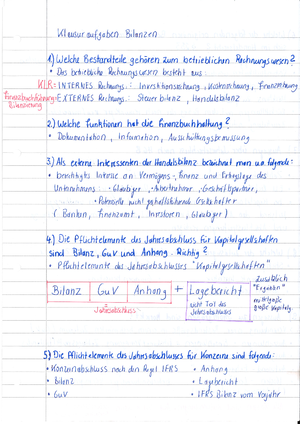 Klausuraufgaben Bilanzen
1.) Welche Bestandteile gehören zum betrieblichen Rechnungswesen?
• Das betriebliche Rechnungswesen besteht aus:
KLR = INTERNES Rechnung.: Investitionsrechnung, Kostenrechnung, Finanzrechnung
Finanzbuchführung = EXTERNES Rechnung.: Steuerbilanz, Handelsbilanz
Bilanzierung
2.) Welche Funktionen hat die Finanzbuchhaltung?
• Dokumentation, Information, Ausschüttungsbemessung
3.) Als externe Interessenten der Handelsbilanz bezeichnet man u.a. folgende:
• berechtigtes Interesse an Vermögens-, Finanz und Ertragslage des
Unternehmens: • Gläubiger • Arbeitnehmer • Geschäftspartner,
• Potenzielle nicht geschäftsführende Gesellschafter
( Banken, Finanzamt, Investoren, Gläubiger )
4.) Die Pflichtelemente des Jahresabschluss für Kapitalgesellschaften
sind Bilanz, GuV und Anhang. Richtig?
• Pflichtelemente des Jahresabschlusses "Kapitalgesellschaften"
Bilanz | GuV | Anhang + Lagebericht
zusätzlich
"Ergänzen"
mittelgroße
große Kapitalg.
nicht Teil des
Jahresabschlusses
=
Jahresabschluss
5.) Die Pflichtelemente des Jahresabschlusses für Konzerne sind folgende:
• Konzernabschluss nach den Regel IFRS • Anhang
• Bilanz • Lagebericht
• GuV • IFRS Bilanz vom Vorjahr